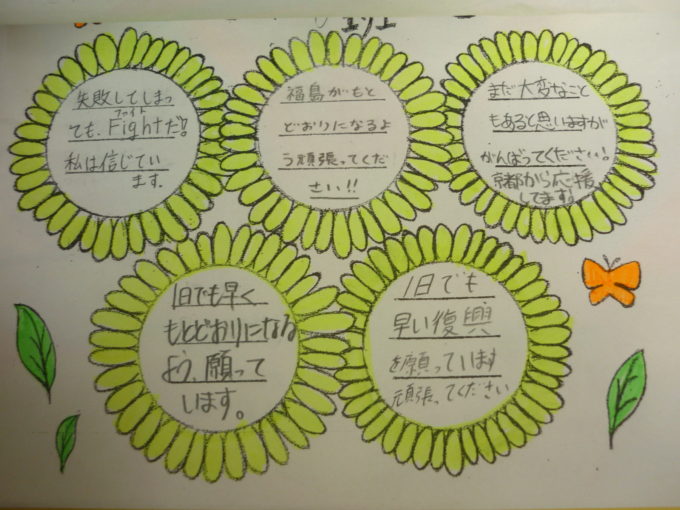 失敗してしまっ
ファイト
ても、Fightだ!
私は信じてい
ます。
福島がもと
どおりになるよ
う頑張ってくだ
さい!!
まだ大変なこと
もあると思いますが
がんばってください!
京都から応援
してます!
1日でも早く
もとどおりになる
よう、願って
います。
1日でも
早い復興
を願っています
頑張ってください